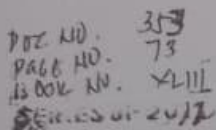 DOC NO. 353
PAGE NO. 73
BOOK NO. XLIII
SERIES OF 2017